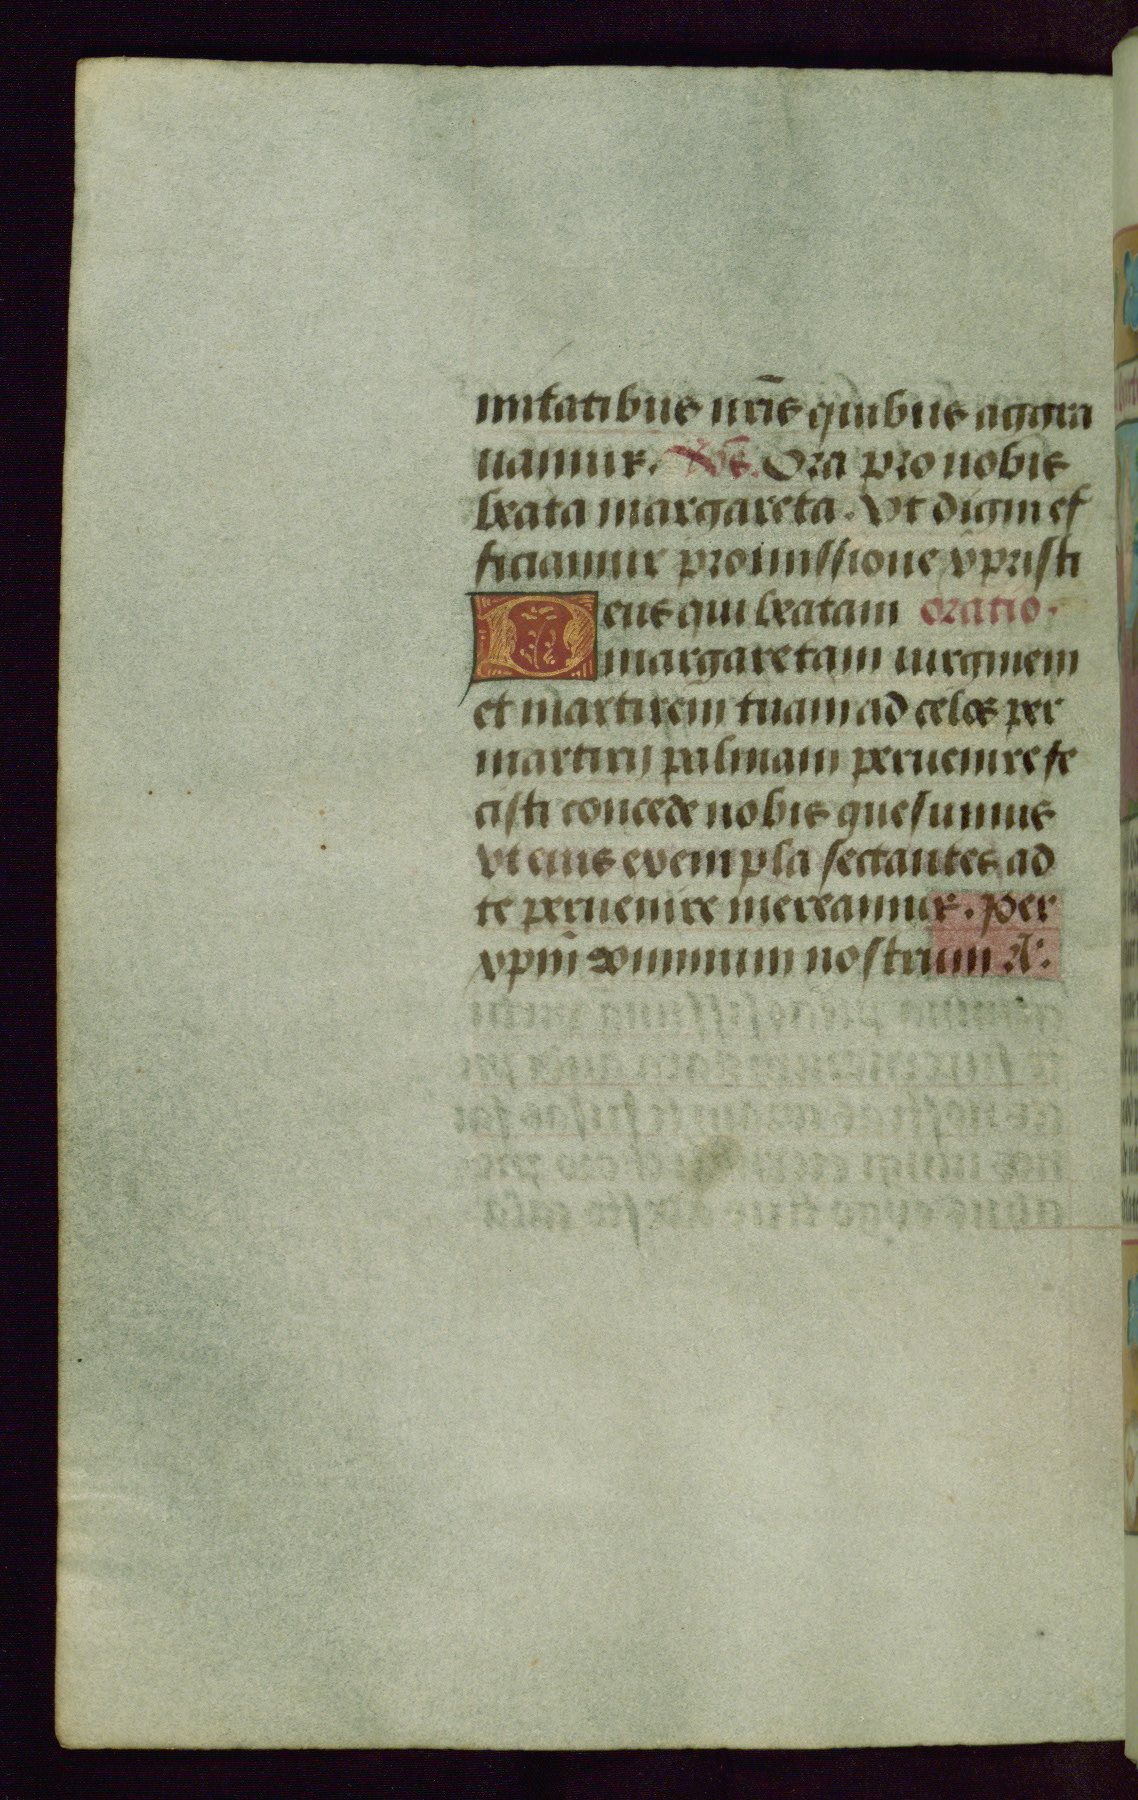 mitatibus nr̄is quibus aggra
uamur. v̄s. Ora pro nobis
beata margareta. Vt digni ef
ficiamur promissione xpristi
Deus qui beatam oratio.
margaretam uirginem
et martirem tuam ad celos per
martirij palmam peruenire fe
cisti concede nobis quesumus
vt eius exempla sectantes ad
te peruenire mereamur. per
xpm̄ dominum nostrum A: